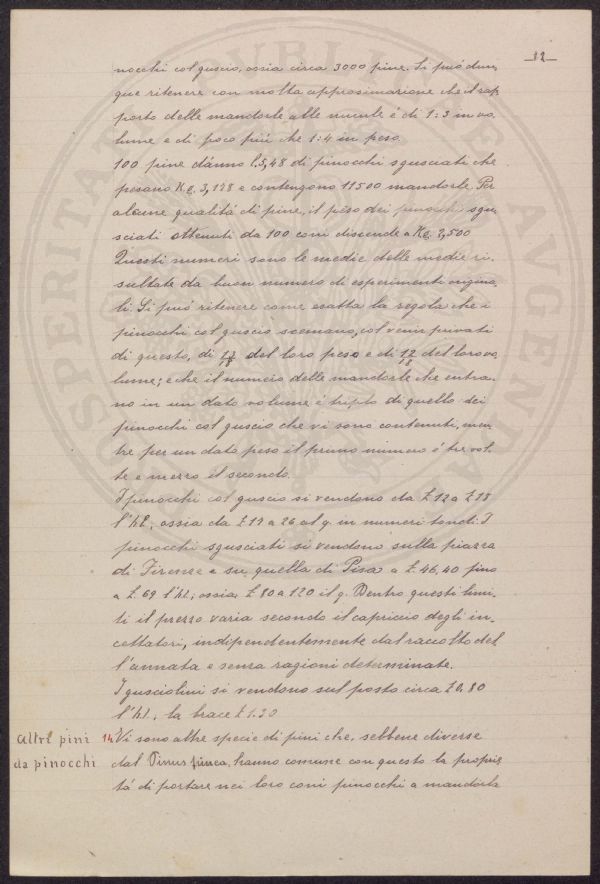 12
nocchi col guscio, ossia circa 3000 pine. Si può dun¬
que ritenere con molta approssimazione che il rap¬
porto delle mandorle alle nucule è di 1:3 in vo¬
lume e di poco più che 1:4 in peso.
100 pine dánno l. 5,48 di pinocchi sgusciati che
pesano Kg. 3,128 e contengono 11500 mandorle. Per
alcune qualitá di pine, il peso dei pinocchi sgu¬
sciati ottenuti da 100 coni discende a Kg. 2,500
Questi numeri sono le medie delle medie ri¬
sultate da buon numero di esperimenti origina¬
li. Si puó ritenere come esatta la regola che i
pinocchi col guscio scemano, col venir privati
di questo, di del loro peso e di 12/18 del loro vo¬
lume; e che il numero delle mandorle che entra¬
no in un dato volume é triplo di quello dei
pinocchi col guscio che vi sono contenuti, men¬
tre per un dato peso il primo numero é tre vol¬
te e mezzo il secondo.
I pinocchi col guscio si vendono da £ 12 a £ 18
l'hl., ossia da £ 17 a 26 al q. in numeri tondi. I
pinocchi sgusciati si vendono sulla piazza
di Firenze e su quella di Pisa a £ 46,40 fino
a £. 69 l'hl., ossia £ 80 a 120 il q. Dentro questi limi¬
ti il prezzo varia secondo il capriccio degli in¬
cettatori, indipendentemente dal raccolto del¬
l'annata e senza ragioni determinate.
I gusciolini si vendono sul posto circa £ 0,80
l'hl., la brace £ 1.30
Altri pini da pinocchi
14. Vi sono altre specie di pini che, sebbene diverse
dal Pinus pinea, hanno comune con questo la proprie
tá di portare nei loro coni pinocchi a mandorla